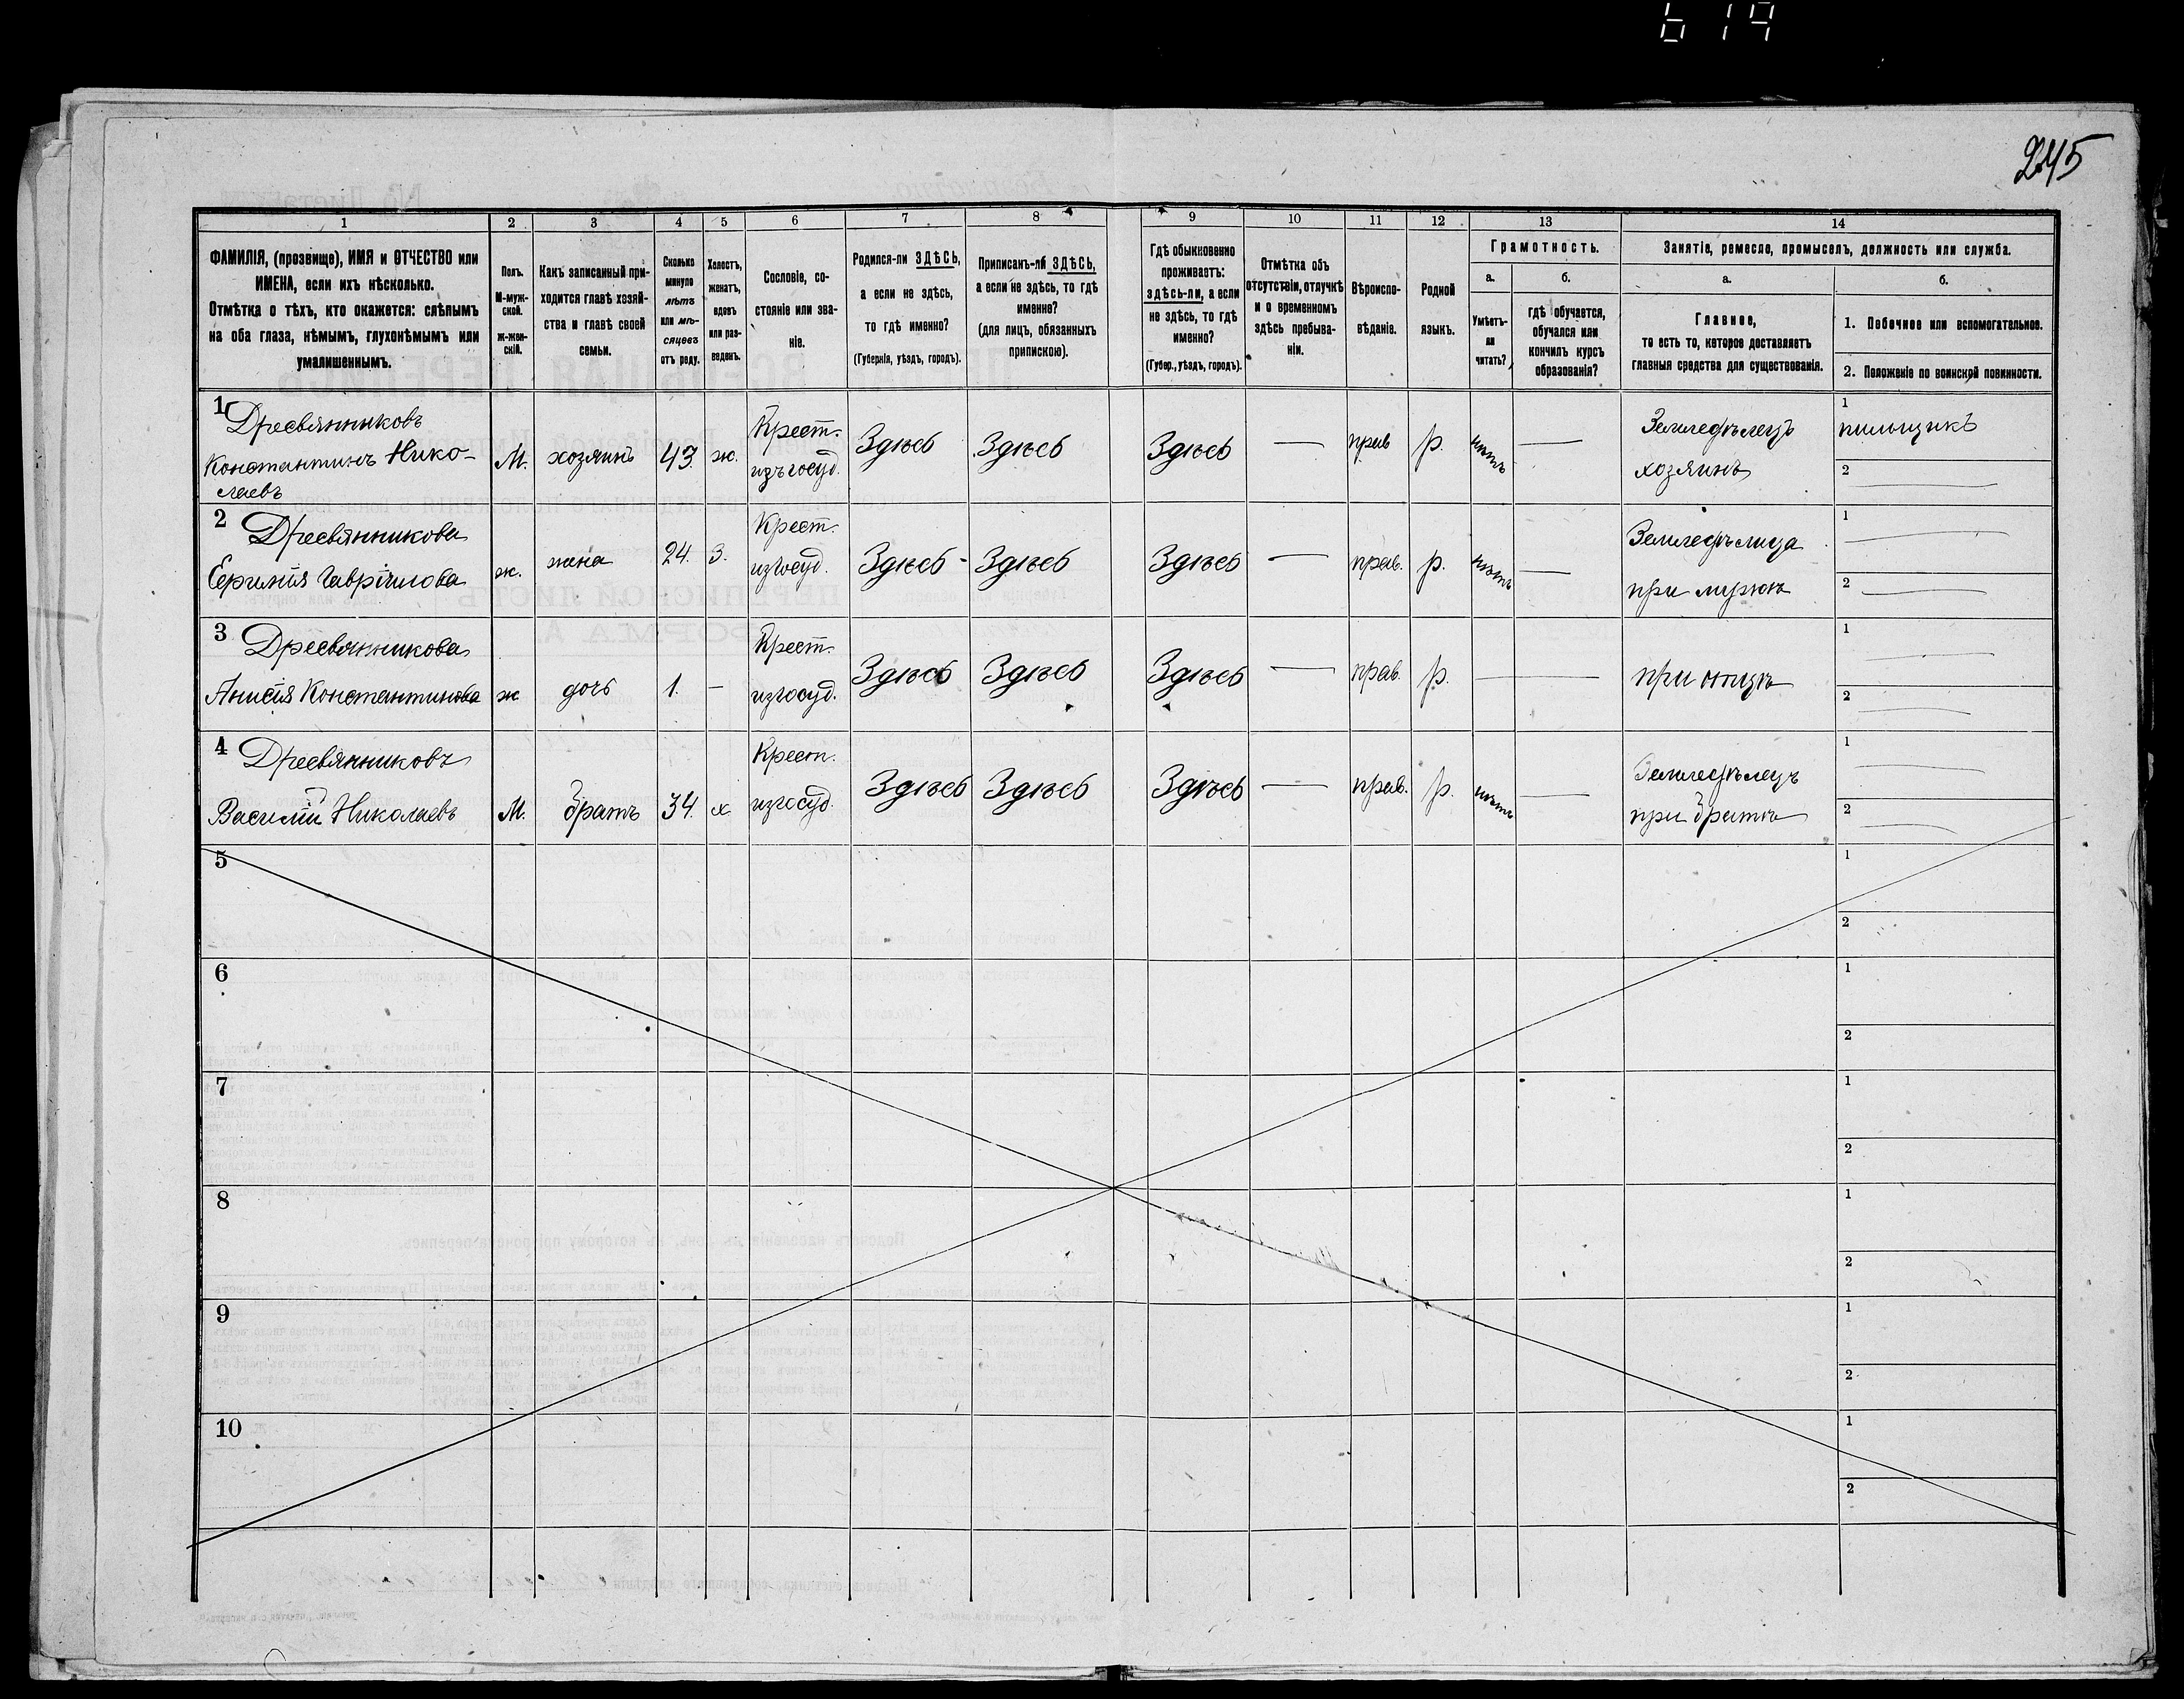 245
1
2
3
4
5
6
7
8
9
10
11
12
13
14
ФАМИЛІЯ, (прозвище), ИМЯ и ОТЧЕСТВО или
ИМЕНА, если ихъ нѣсколько.
Отмѣтка о тѣхъ, кто окажется: слѣпымъ
на оба глаза, нѣмымъ, глухонѣмымъ или
умалишеннымъ.
Полъ.
М-муж-
ской.
ж-жен-
скій.
Какъ записанный при-
ходится главѣ хозяй-
ства и главѣ своей
семьи.
Сколько
минуло
лѣтъ
или мѣ-
сяцевъ
отъ роду.
Холостъ,
женатъ,
вдовъ
или раз-
веденъ.
Сословіе, со-
стояніе или зва-
ніе.
Родился-ли ЗДѢСЬ,
а если не здѣсь,
то гдѣ именно?
(Губернія, уѣздъ, городъ).
Приписанъ-ли ЗДѢСЬ,
а если не здѣсь, то гдѣ
именно?
(для лицъ, обязанныхъ
припискою).
Гдѣ обыкновенно
проживаетъ:
здѣсь-ли, а если
не здѣсь, то гдѣ
именно?
(Губер., уѣздъ, городъ).
Отмѣтка объ
отсутствіи, отлучкѣ
и о временномъ
здѣсь пребыва-
ніи.
Вѣроиспо-
вѣданіе.
Родной
языкъ.
Грамотность.
а.
Умѣетъ-
ли
читать?
б.
гдѣ обучается,
обучался или
кончилъ курсъ
образованія?
Занятіе, ремесло, промыселъ, должность или служба.
а.
Главное,
то есть то, которое доставляетъ
главныя средства для существованія.
б.
1. Побочное или вспомогательное.
2. Положеніе по воинской повинности.
1 Древянниковъ
Константинъ Нико-
лаевъ
М.
хозяинъ
43.
ж.
Крест.
изъ госуд.
Здѣсь
Здѣсь
Здѣсь
—
прав
р.
нѣтъ
—
Земледѣлецъ
хозяинъ
1
пильщикъ
2 —
2 Древянникова
Гаврiилова
ж.
жена
24.
З.
Крест.
изъ госуд.
Здѣсь -
Здѣсь
Здѣсь
—
прав.
р.
нѣтъ
—
Земледѣлица
при мужѣ
1 —
2 —
3 Древянникова
Анисія Константинова
ж
дочь
1.
—
Крест.
изъ госуд.
Здѣсь
Здѣсь
Здѣсь
—
прав.
р.
—
—
при отцѣ
1 —
2 —
4 Древянниковъ
Василій Николаевъ
М.
братъ
34.
х
Крест.
изъ госуд.
Здѣсь
Здѣсь
Здѣсь
—
прав.
р.
нѣтъ
—
Земледѣлецъ
при братѣ
1 —
2 —
5
1
2
6
1
2
7
1
2
8
1
2
9
1
2
10
1
2